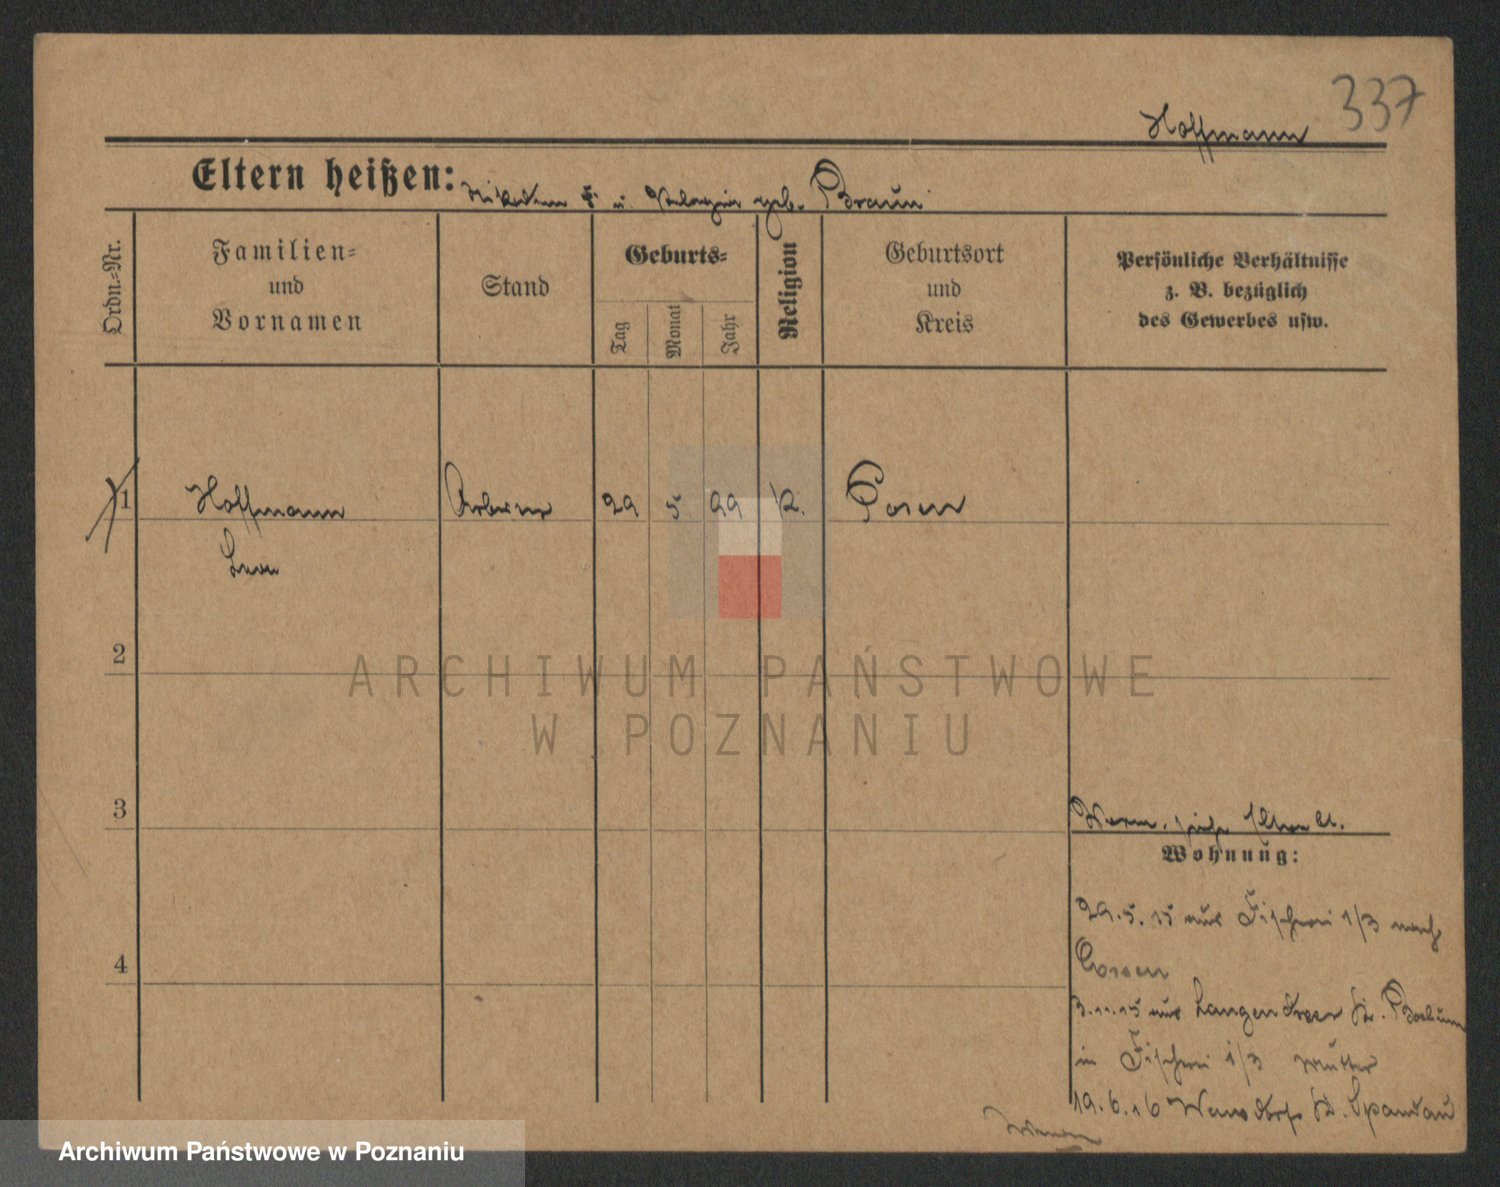 337
Hoffmann
Eltern heißen: Nikodem u. Pelagia geb. Braun
Ordn.-Nr.
Familien-
und
Vornamen
Stand
Geburts-
Tag
Monat
Jahr
Religion
Geburtsort
und
Kreis
Persönliche Verhältnisse
z. B. bezüglich
des Gewerbes usw.
1 Hoffmann Arbeiter 29 5 99 k. Posen
Leon
2
3
4
Verm. siehe
Wohnung:
29.5.15 aus Fischerei 1/3 nach
3.11.15 aus Langendreer Kr. Bochum
in Fischerei 1/3 Mutter
19.6.16 Kr. Spandau
ARCHIWUM PAŃSTWOWE
W POZNANIU
Archiwum Państwowe w Poznaniu